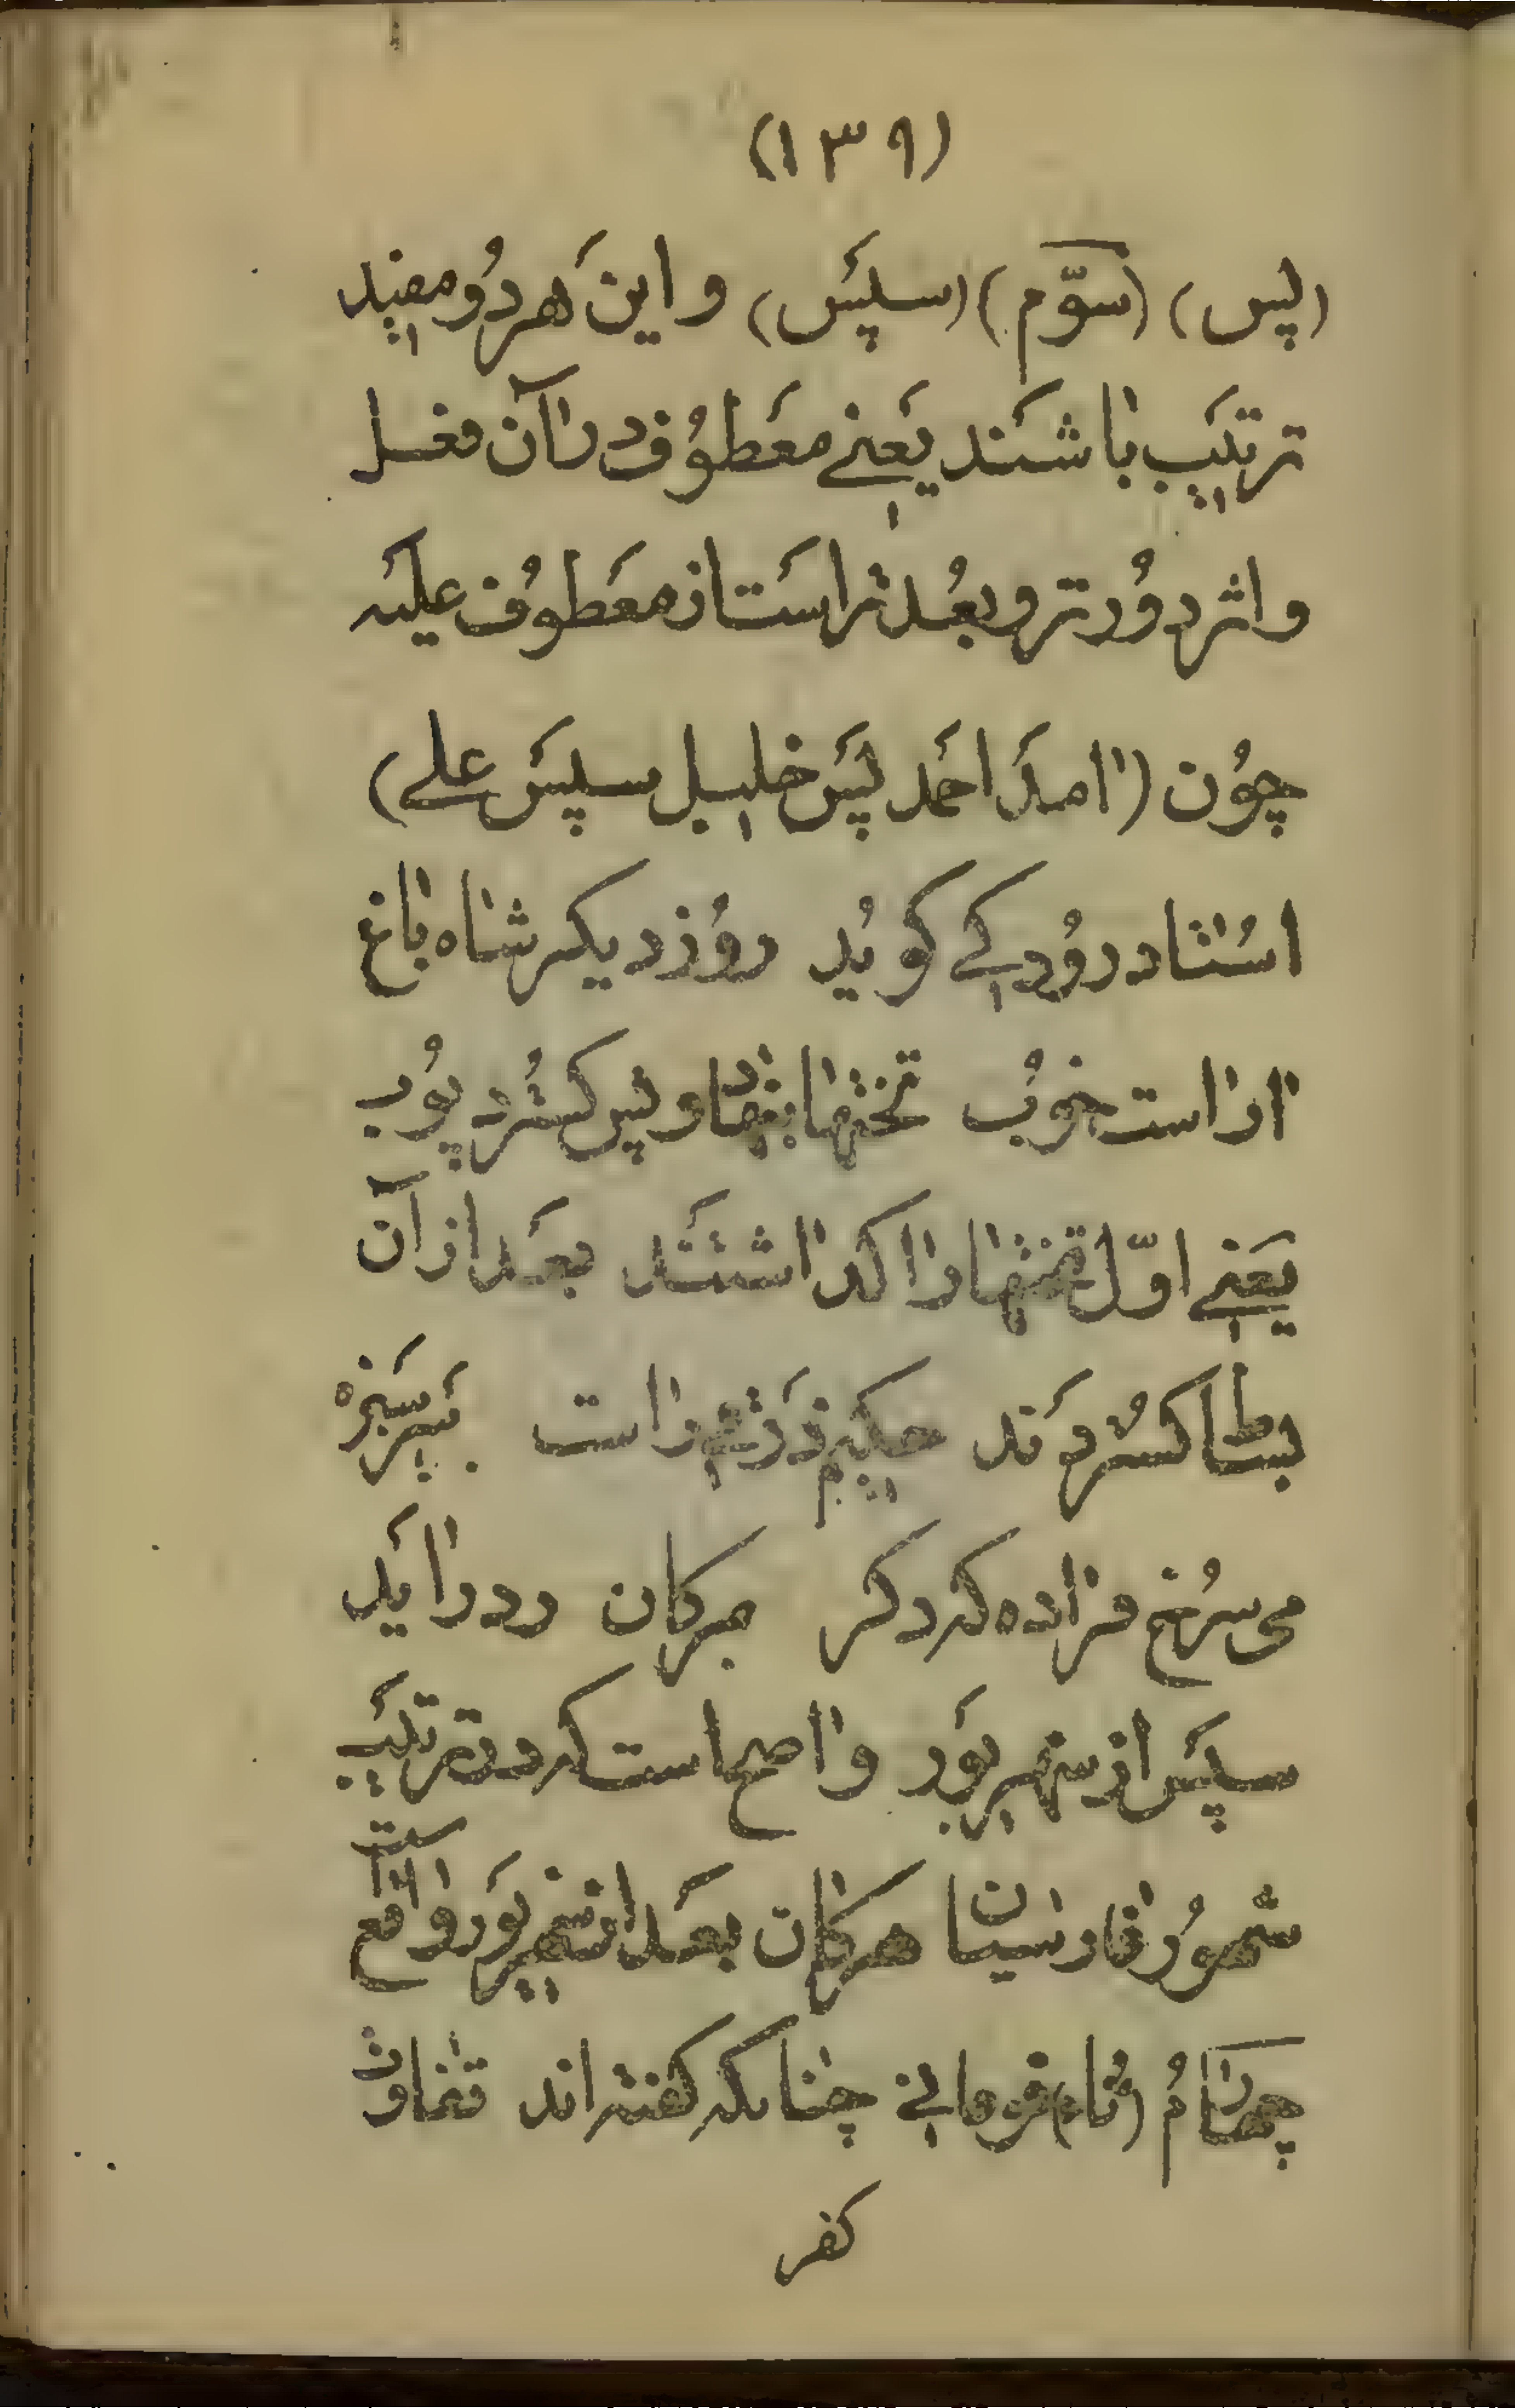 (۱۳۹)
(پس) (سوّم) (سپَس) و این هَر دُو مفید
ترتیَب باشَند یَعنے مَعَطوُف در آن فعل
و اثر دوُر تر و بعُد تر اسَت از معَطوُف علیَه
چوُن (امدَ احَمد پَس خلیل سپَس علے)
اسُتاد روُدکے کویُد روُز دیکر شاه باغ
اراست خوُب تختها بنهاد و پس کسُترد پوُب
یَعنے اوّل تختها را کذاشتَند بعَد از آن
بساط کسُتردَند حکیم زَرتهر است بَرسَبزه
می سرُخ فزاده کرد کر مهرکان در درایَد
سپَس از تیر بوَد واضح است که در ترتیَب
شهوُر فارسیان مهرکان بعَد از تیر بوَد واقع است
چهارُم (ثا) فرمانے چنانکه کفته اند تفاوت
کفر